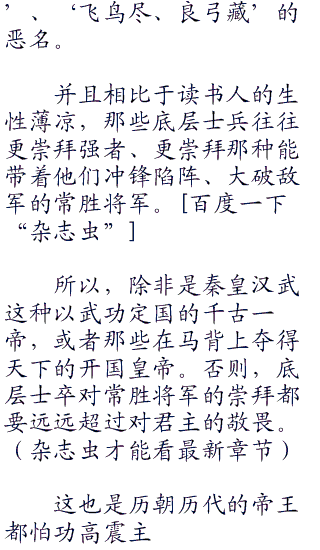 ’、‘飞鸟尽、良弓藏’的
恶名。
并且相比于读书人的生
性薄凉，那些底层士兵往往
更崇拜强者、更崇拜那种能
带着他们冲锋陷阵、大破敌
军的常胜将军。[百度一下
“杂志虫”]
所以，除非是秦皇汉武
这种以武功定国的千古一
帝，或者那些在马背上夺得
天下的开国皇帝。否则，底
层士卒对常胜将军的崇拜都
要远远超过对君主的敬畏。
（杂志虫才能看最新章节）
这也是历朝历代的帝王
都怕功高震主